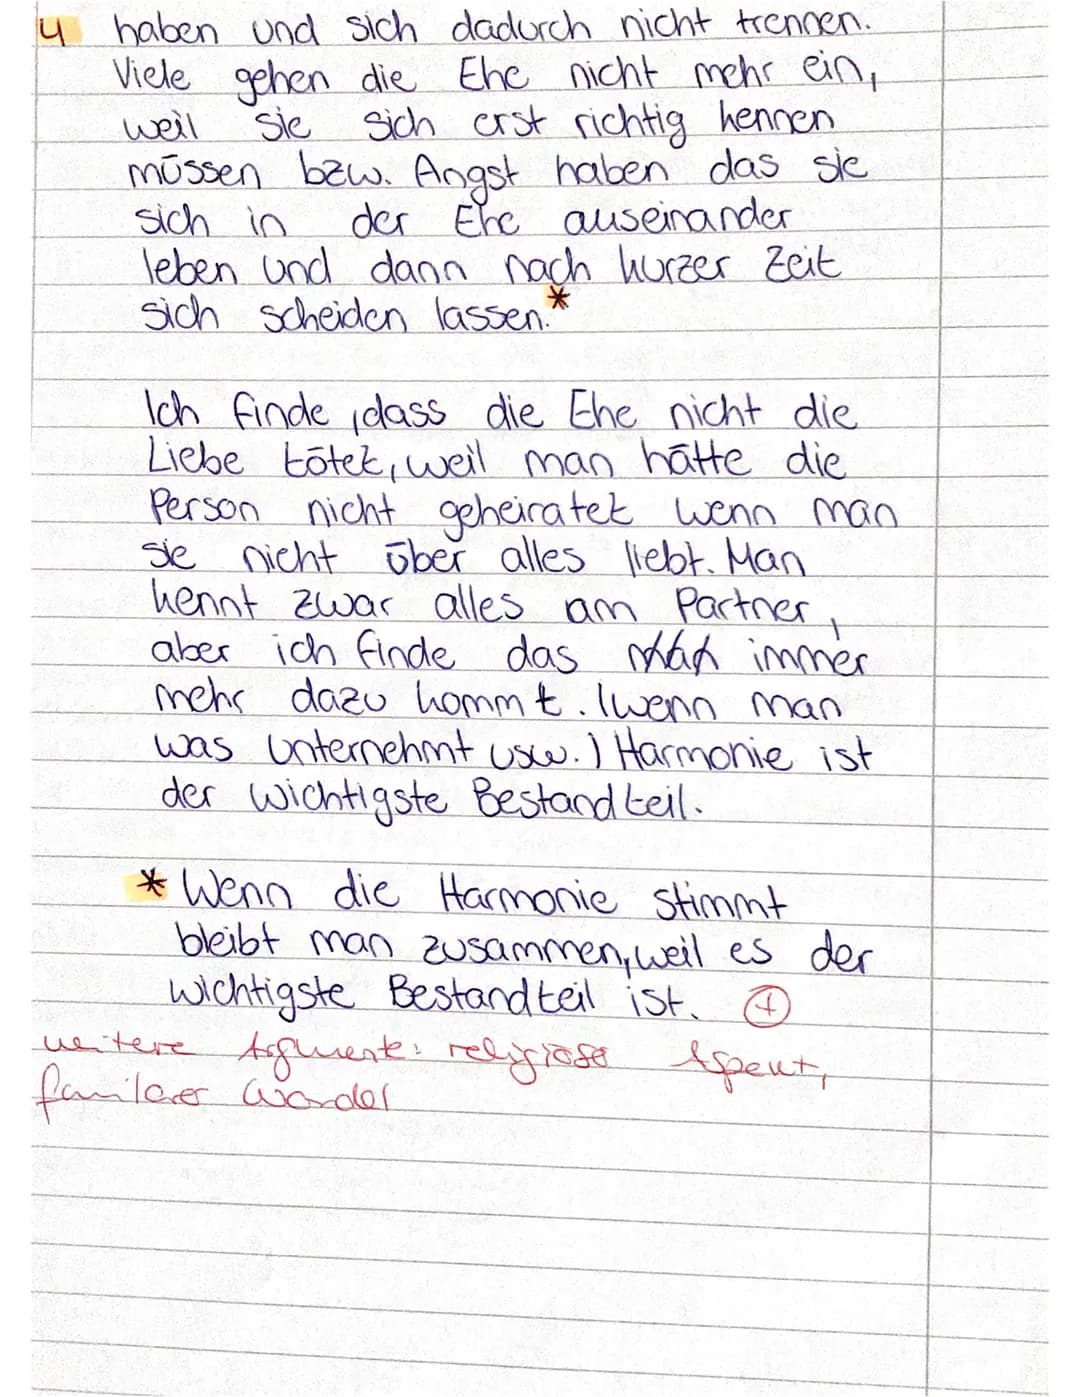 4 haben und sich dadurch nicht trennen.
Viele gehen die Ehe nicht mehr ein,
weil sie sich erst richtig kennen
müssen bzw. Angst haben das sie
sich in der Ehe auseinander
leben und dann nach kurzer Zeit
sich scheiden lassen.*
Ich finde, dass die Ehe nicht die
Liebe tötet, weil man hätte die
Person nicht geheiratet wenn man
sie nicht über alles liebt. Man
kennt zwar alles am Partner,
aber ich finde das immer
mehr dazu kommt. (wenn man
was unternehmt usw.) Harmonie ist
der wichtigste Bestandteil.
* Wenn die Harmonie stimmt
bleibt man zusammen, weil es der
wichtigste Bestandteil ist. +
weitere Argumente: religiöser Aspekt,
familärer Wandel